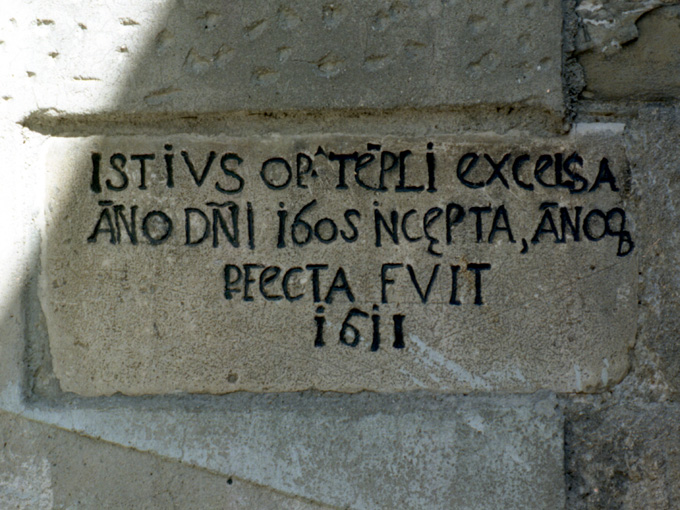 ISTIVS OP.^A TĒPLI EXCELSA
ĀNO DÑI 1605 INCĘPTA, ĀNOQ
PFECTA FVIT
1611